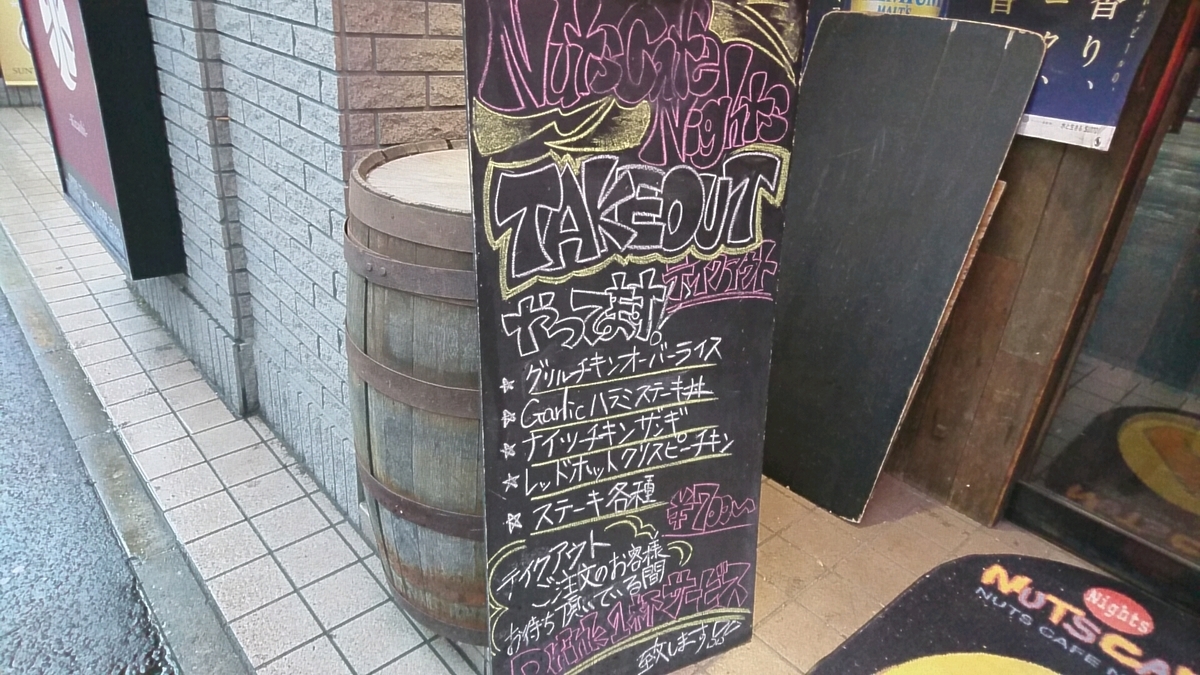 Nuts Cafe
Nights
TAKEOUT
テイクアウト
やってます!
☆ グリルチキンオーバーライス
☆ Garlic ハラミステーキ丼
☆ ナイツチキンザンギ
☆ レッドホットクリスピーチキン
☆ ステーキ各種
¥700~
テイクアウト
ご注文のお客様
お待ち頂いている間
Drink 1杯サービス
致します!
NUTSCA
Nights
NUTS CAFE N